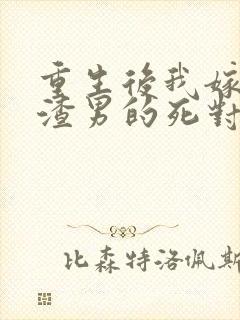 重生後我嫁
渣男的死對
比森特洛佩斯